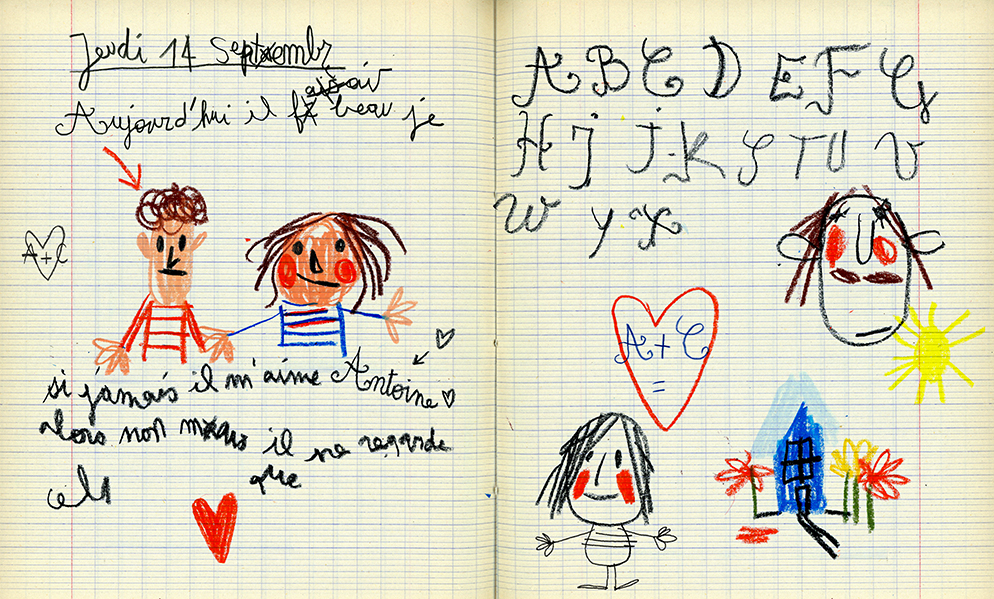 Jeudi 14 Septembr
Aujourd'hui il beau je
A+C
si jamais il m'aime Antoine
alors non mais il ne regarde
que
A B C D E F G
H I J K S T U V
W Y X
A+C
=